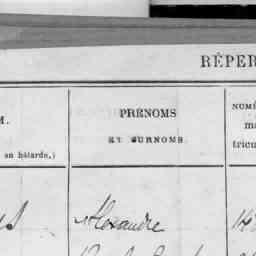 RÉPER
M.
en bâtarde.)
PRÉNOMS
ET SURNOMS.
NUMÉ
ma
tricu
Alexandre